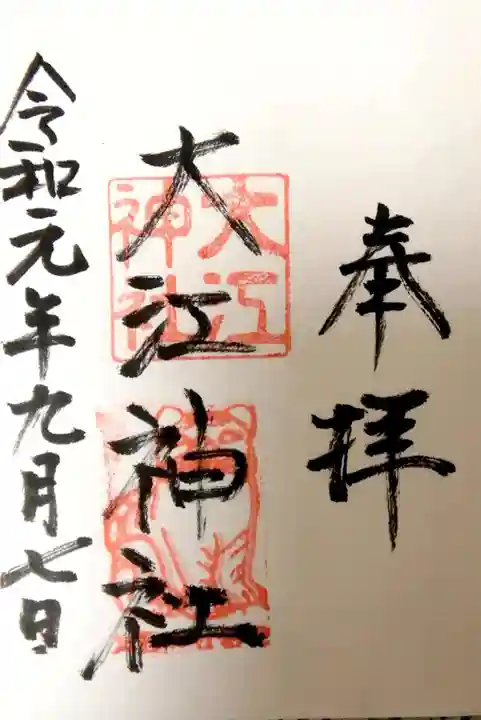 奉拝
大江神社
大江
神社
令和元年九月七日